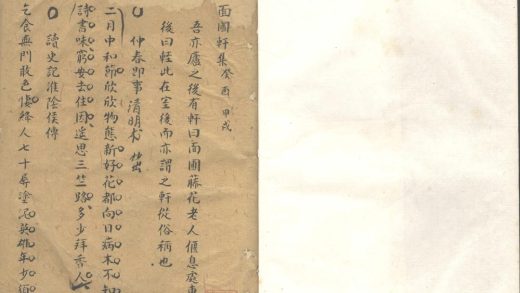 面圃軒集 癸酉 甲戌
吾亦廬之後有軒曰面圃藤花老人偃息處車
後曰輊此在室後而亦謂之軒從俗稱也
仲春即事 清明书
二月中和節欣欣物態新好花都向日病木不知
詩書味窮安去住因遥思三竺路多少拜香人
讀史記淮陰侯傳
乞食無門敢色悽終人七十辱塗泥英雄年少